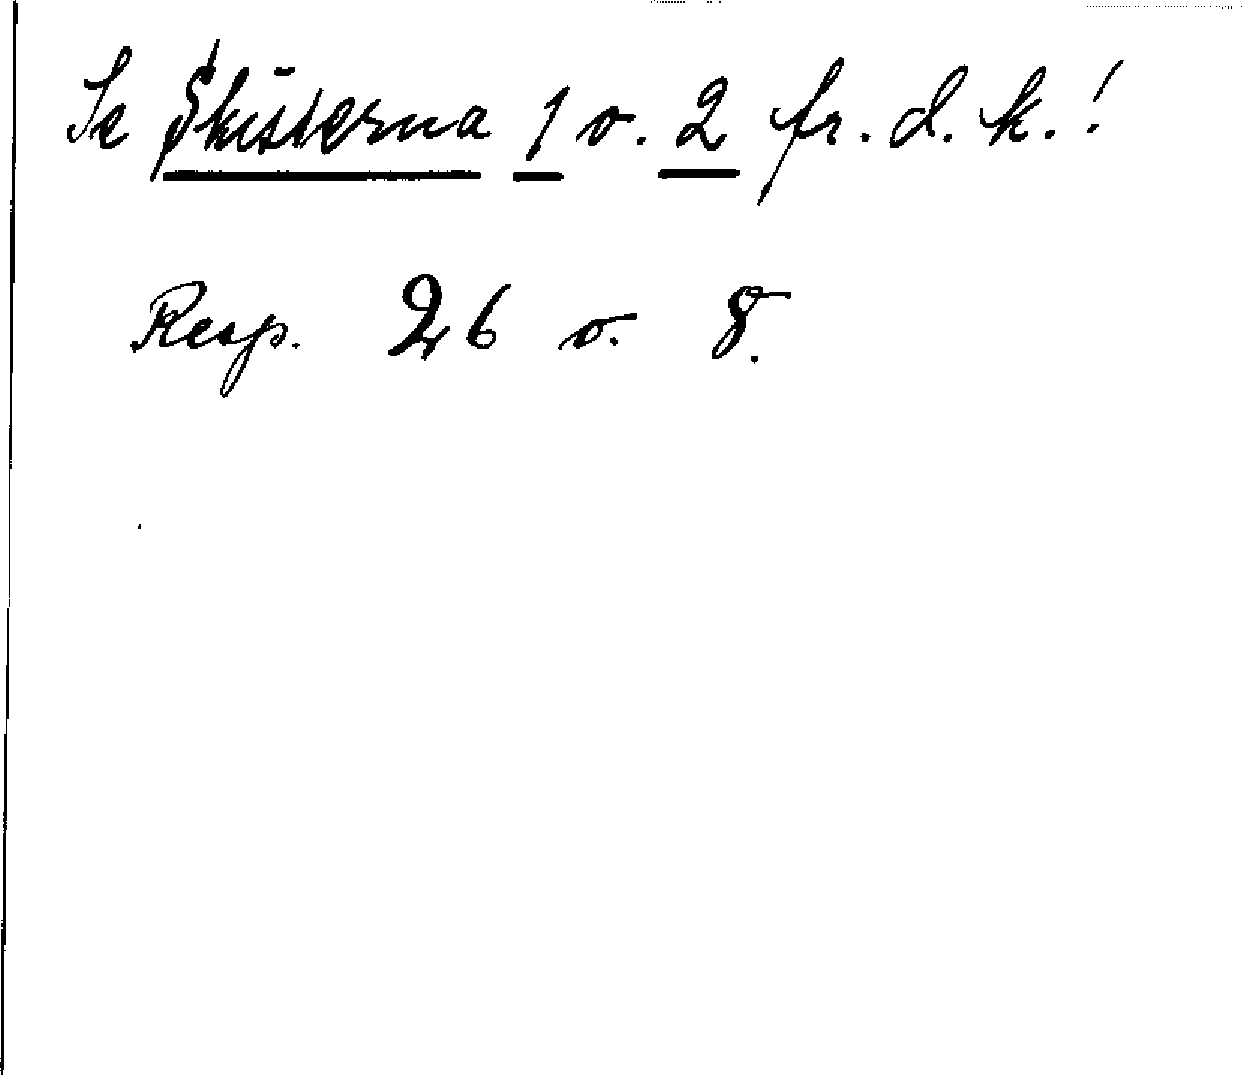 Se Skisserna 1 o. 2 fr. d. k.!
Resp. 26 o. 8.